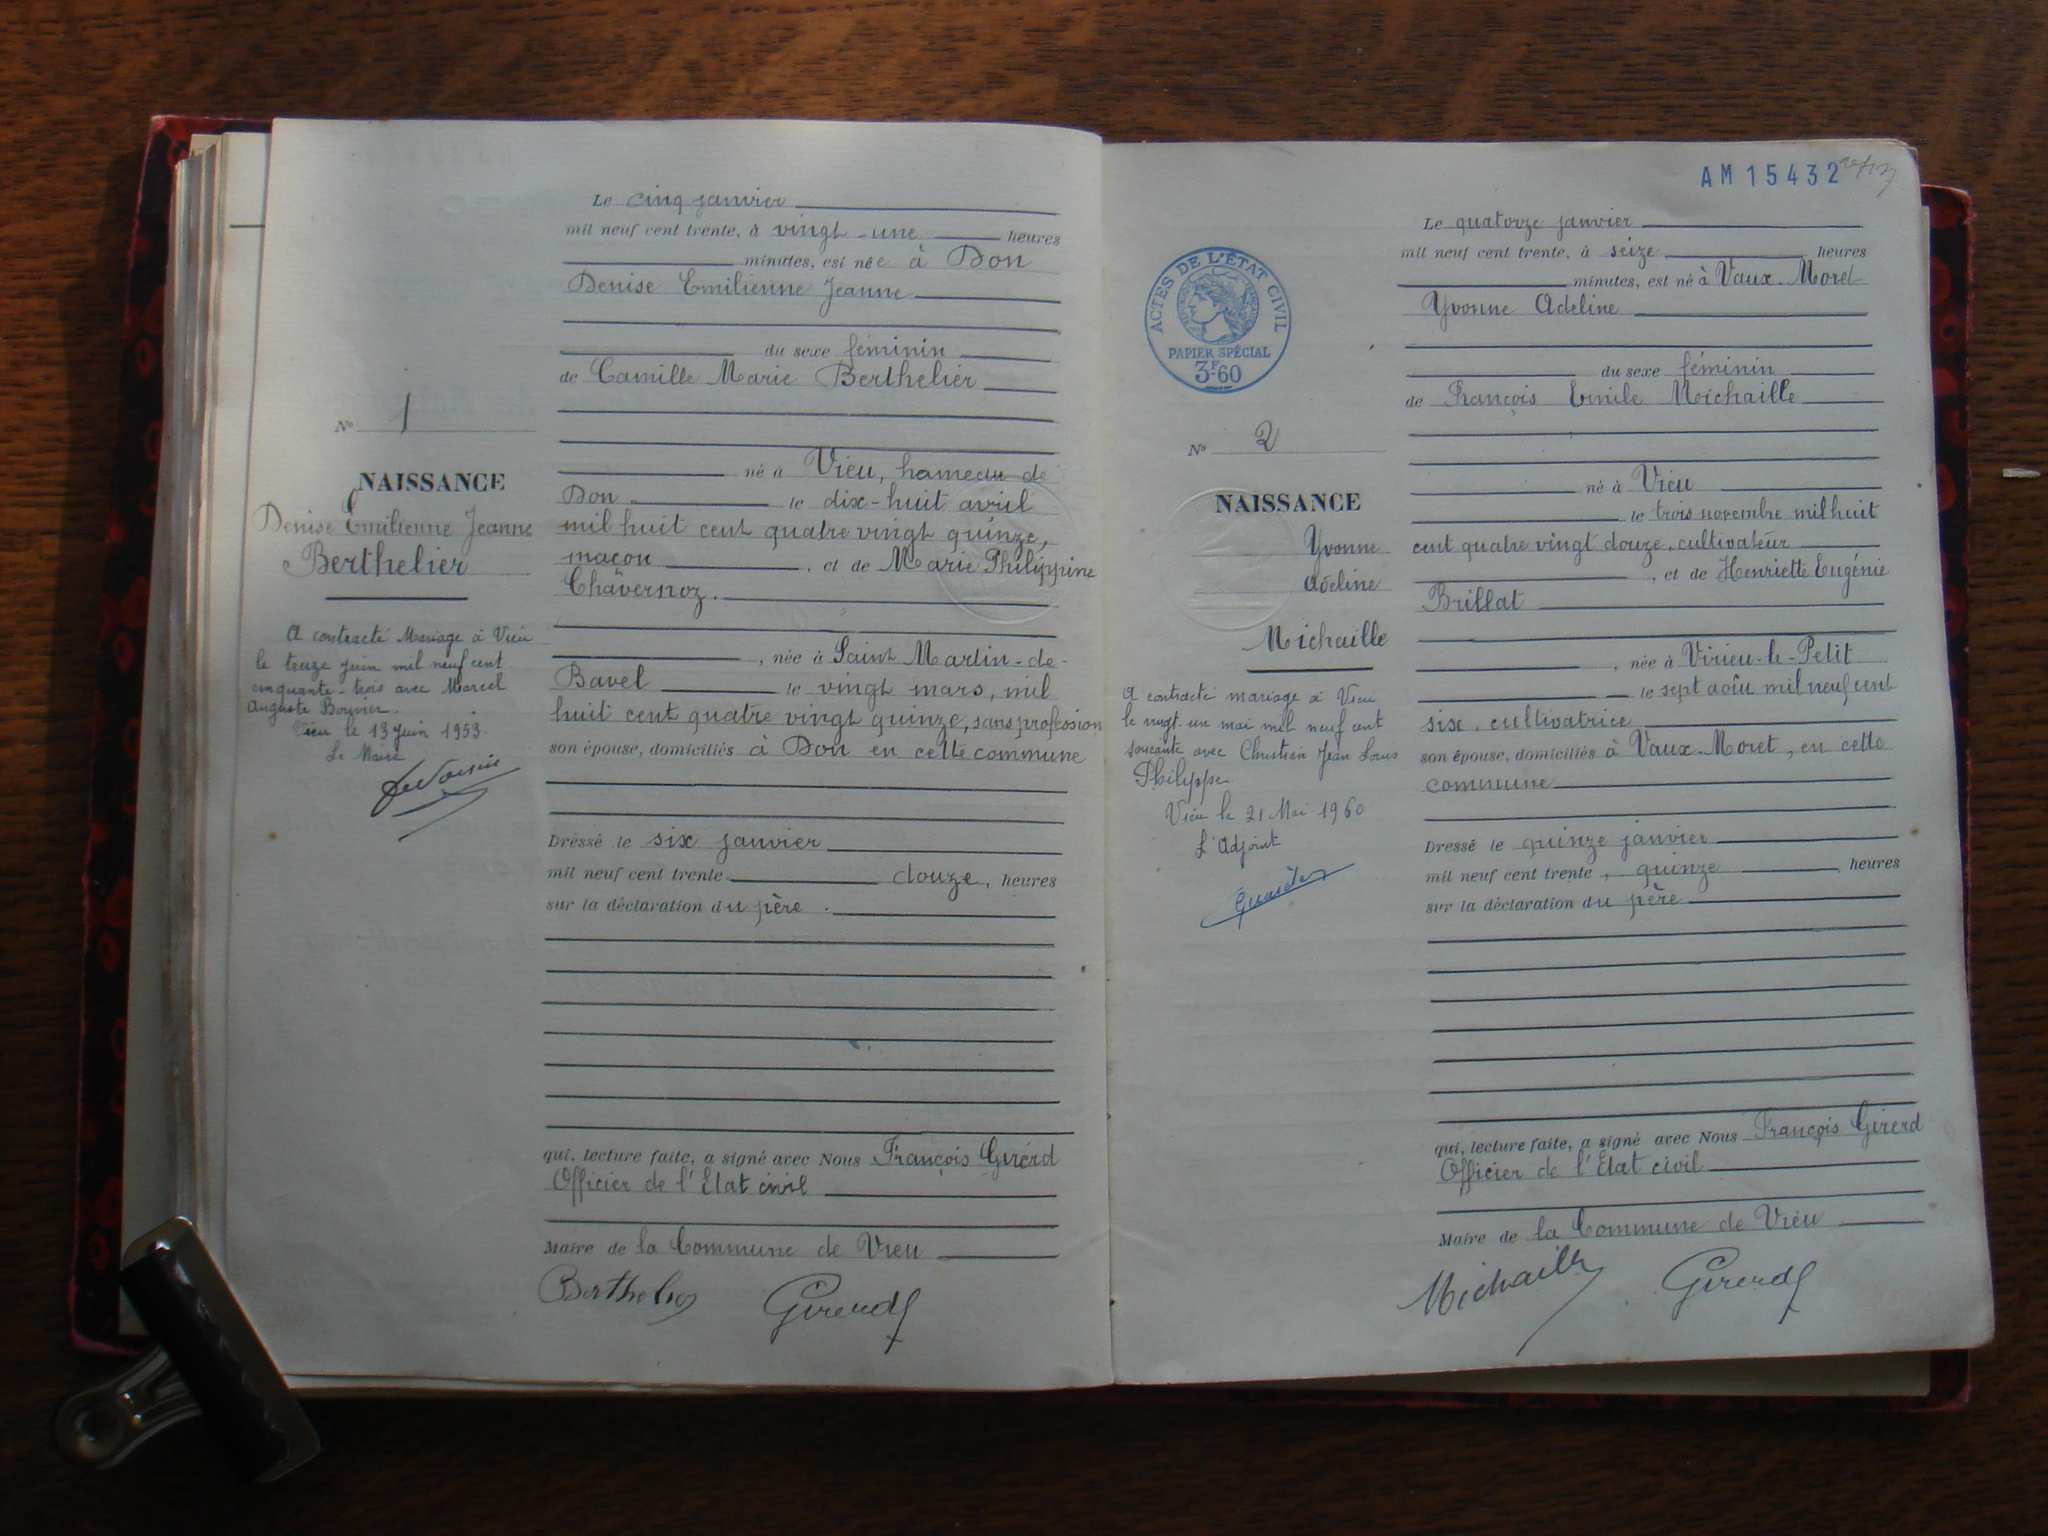 Le cinq janvier
mil neuf cent trente, à vingt-une heures
minutes, est née à Don
Denise Emilienne Jeanne
du sexe féminin
de Camille Marie Berthelier
N° 1
né à Vieu, hameau de
Don le dix-huit avril
mil huit cent quatre vingt quinze,
maçon, et de Marie Philippine
Chavernoz.
née à Saint Martin-de-
Bavel le vingt mars, mil
huit cent quatre vingt quinze, sans profession
son épouse, domiciliés à Don en cette commune
Dressé le six janvier
mil neuf cent trente douze, heures
sur la déclaration du père.
qui, lecture faite, a signé avec Nous François Girerd
Officier de l'Etat civil
Maire de la Commune de Vieu
Berthelier Girerd
NAISSANCE
Denise Emilienne Jeanne
Berthelier
A contracté Mariage à Vieu
le treize juin mil neuf cent
cinquante-trois avec Marcel
Auguste Bouvier.
Vieu le 13 juin 1953.
Le Maire
AM 15432
ACTES DE L'ÉTAT CIVIL
PAPIER SPÉCIAL
3F60
Le quatorze janvier
mil neuf cent trente, à seize heures
minutes, est né à Vaux-Moret
Yvonne Adeline
du sexe féminin
de François Emile Michaille
N° 2
né à Vieu
le trois novembre mil huit
cent quatre vingt douze, cultivateur
, et de Henriette Eugénie
Brillat
, née à Virieu-le-Petit
le sept août mil neuf cent
six, cultivatrice
son épouse, domiciliés à Vaux-Moret, en cette
commune
Dressé le quinze janvier
mil neuf cent trente, quinze, heures
sur la déclaration du père
qui, lecture faite, a signé avec Nous François Girerd
Officier de l'Etat civil
Maire de la Commune de Vieu
Michaille Girerd
NAISSANCE
Yvonne
Adeline
Michaille
A contracté mariage à Vieu
le vingt un mai mil neuf cent
soixante avec Christian Jean Louis
Philippe.
Vieu le 21 Mai 1960
L'Adjoint